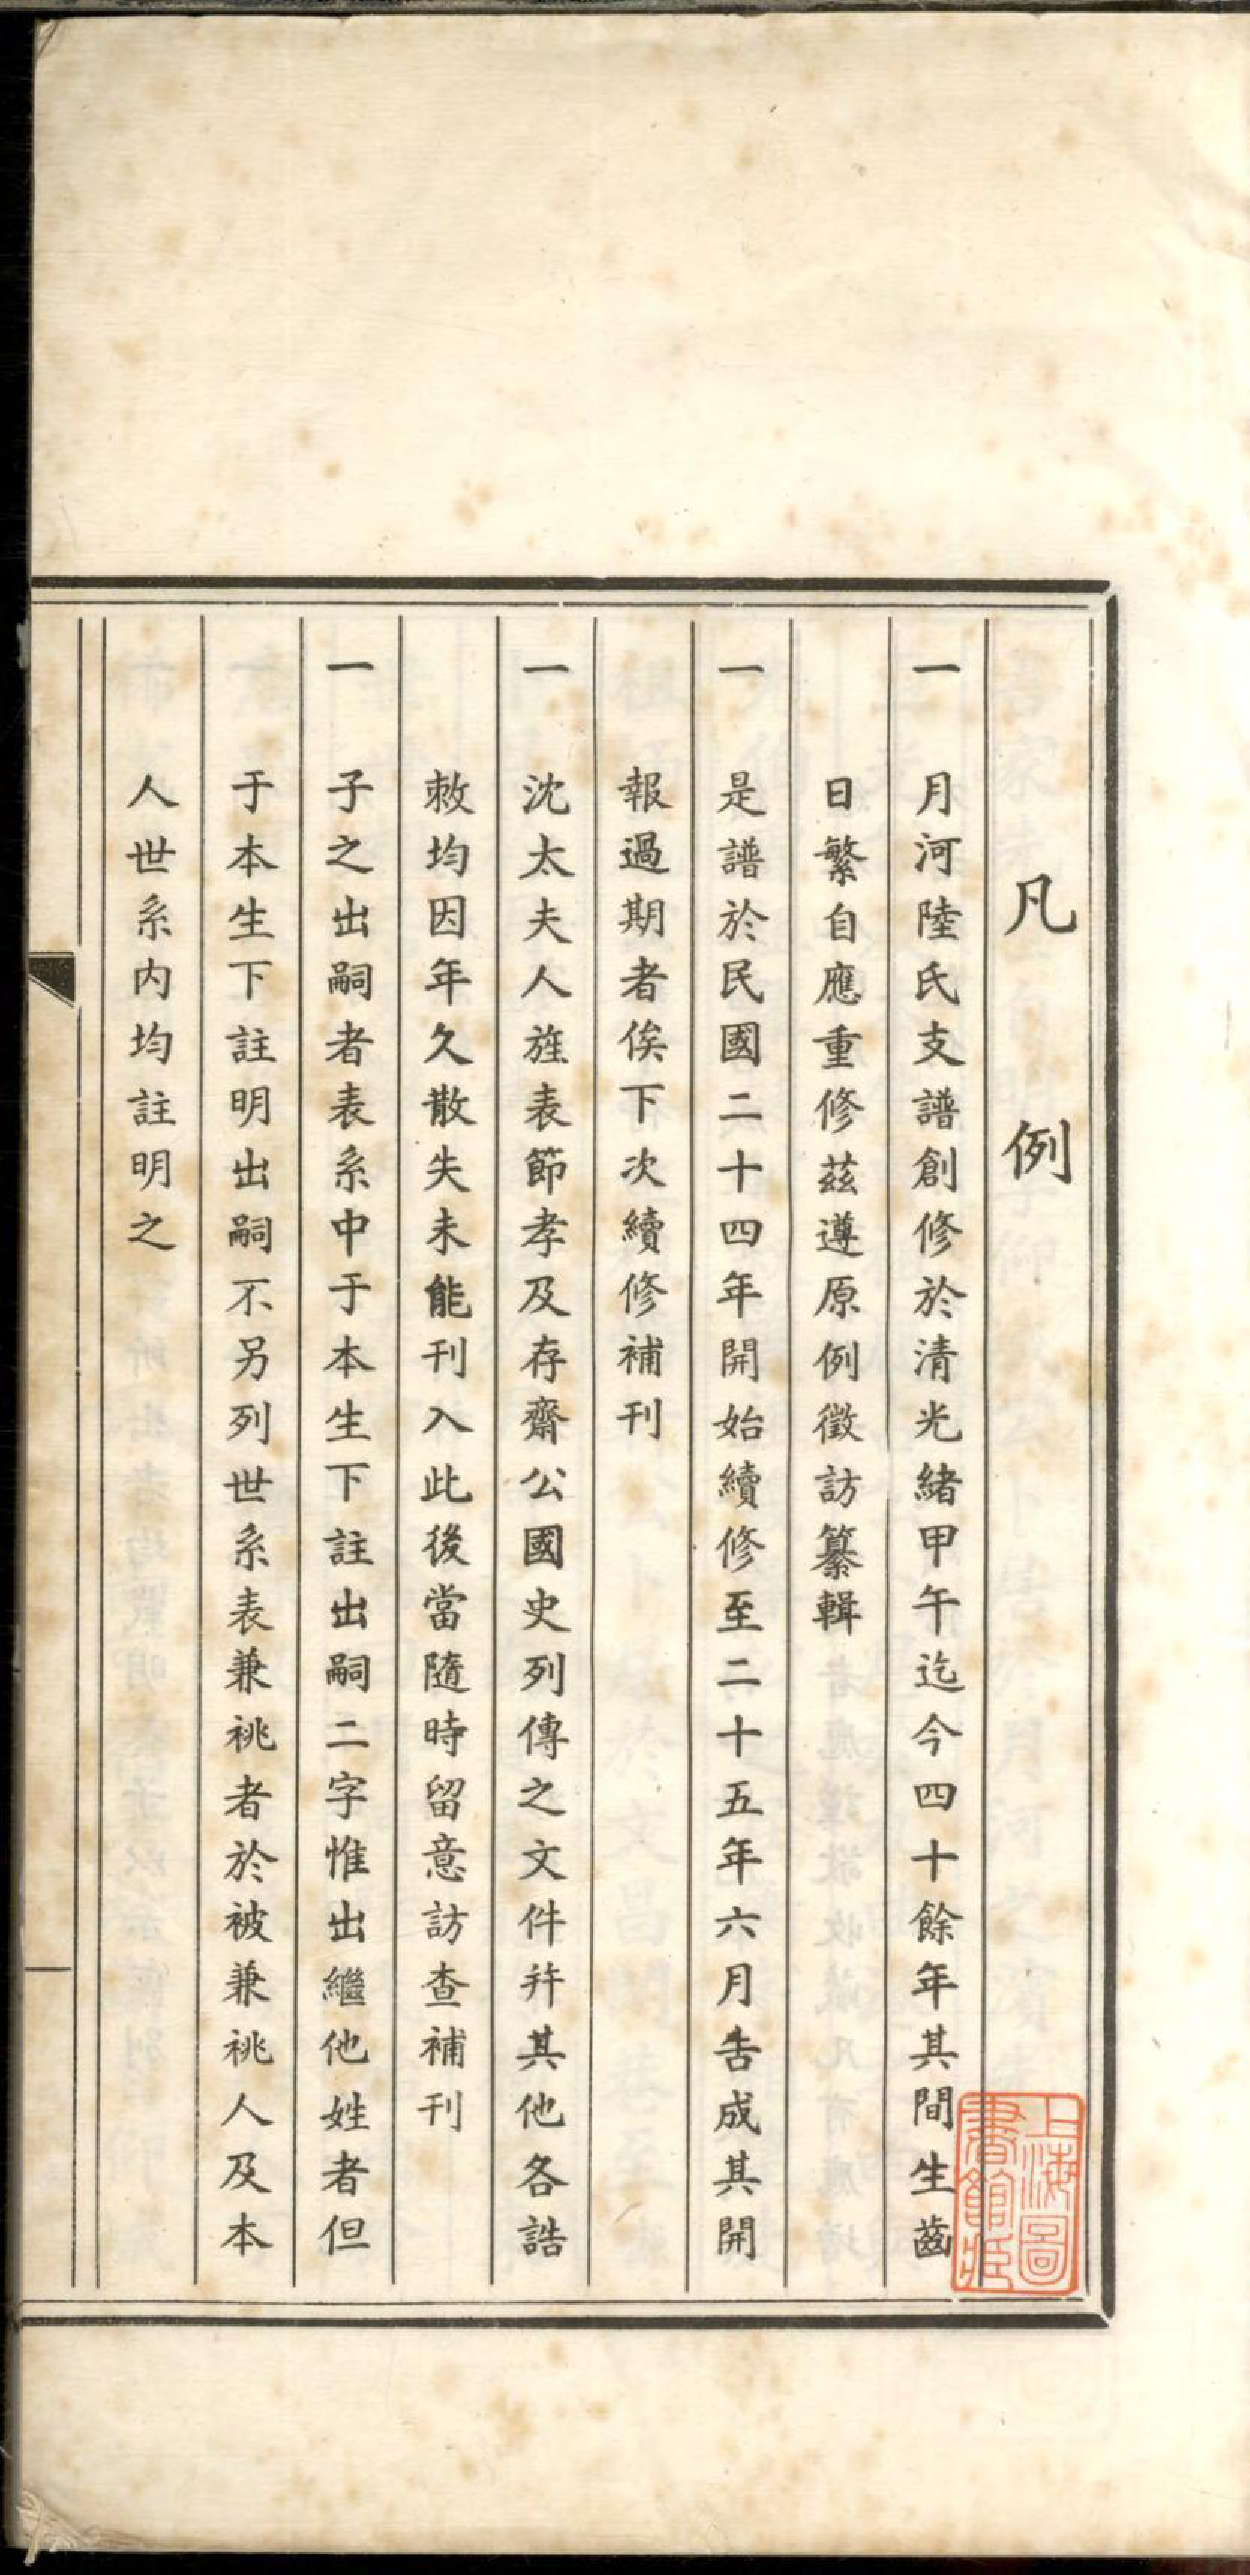 凡例
一 月河陸氏支譜創修於清光緒甲午迄今四十餘年其間生齒
日繁自應重修茲遵原例徵訪纂輯
一 是譜於民國二十四年開始續修至二十五年六月告成其開
報過期者俟下次續修補刊
一 沈太夫人旌表節孝及存齋公國史列傳之文件幷其他各誥
敕均因年久散失未能刊入此後當隨時留意訪查補刊
一 子之出嗣者表系中于本生下註出嗣二字惟出繼他姓者但
于本生下註明出嗣不另列世系表兼祧者於被兼祧人及本
人世系内均註明之
上海圖
書館藏